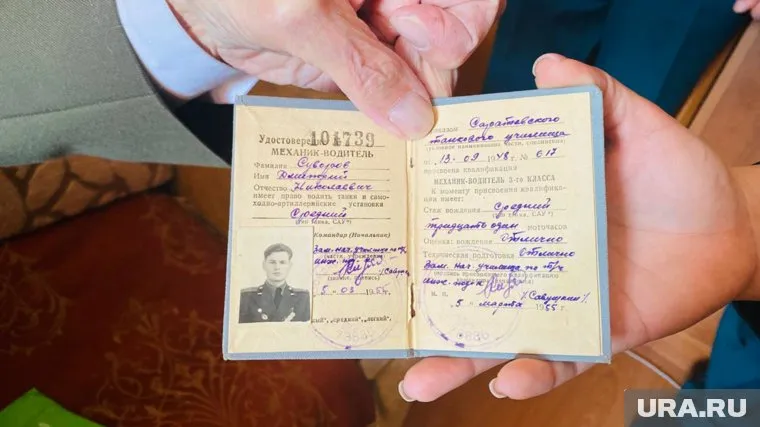 Удостоверение 101739
МЕХАНИК-ВОДИТЕЛЬ
Фамилия Суворов
Имя Дмитрий
Отчество Николаевич
имеет право водить танки и само-
ходно-артиллерийские установки
Средний
(тип танка, САУ*)
Командир (Начальник)
Зам. нач. училища по т/ч
(части, учреждения)
5 03
"средний", "легкий".
Саратовского
танкового училища
от 13 · 09 1948 № 617
присвоена квалификация
МЕХАНИК-ВОДИТЕЛЬ 3-го КЛАССА
К моменту присвоения квалифика-
ции имеет:
Стаж вождения Средний
(тип танка, САУ*)
тридцать один моточасов
Оценка: вождения Отлично
Техническая подготовка отлично
Зам. нач. училища по т/ч
5 марта 1955 г.
URA.RU